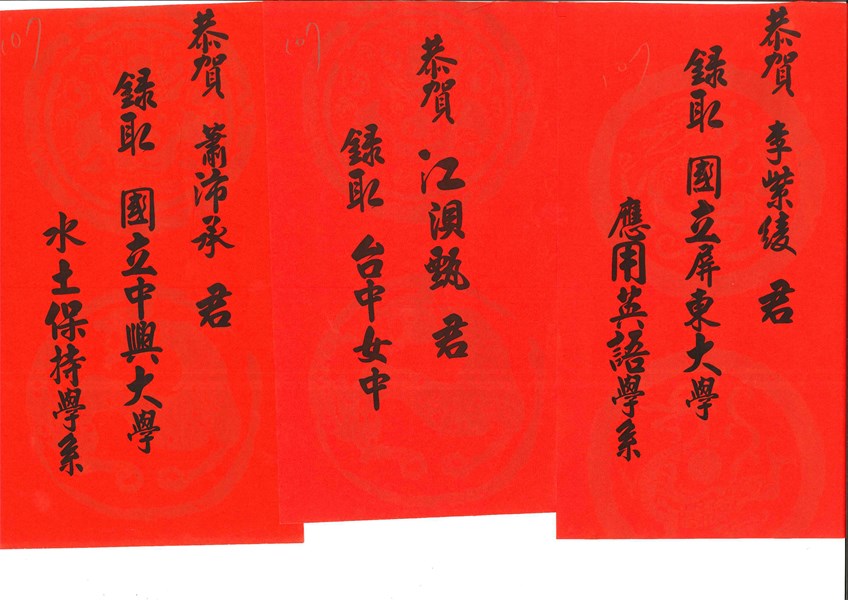 恭賀 李紫綾 君
錄取 國立屏東大學
應用英語學系
107
恭賀 江浿甄 君
錄取 台中女中
107
恭賀 蕭沛承 君
錄取 國立中興大學
水土保持學系
107